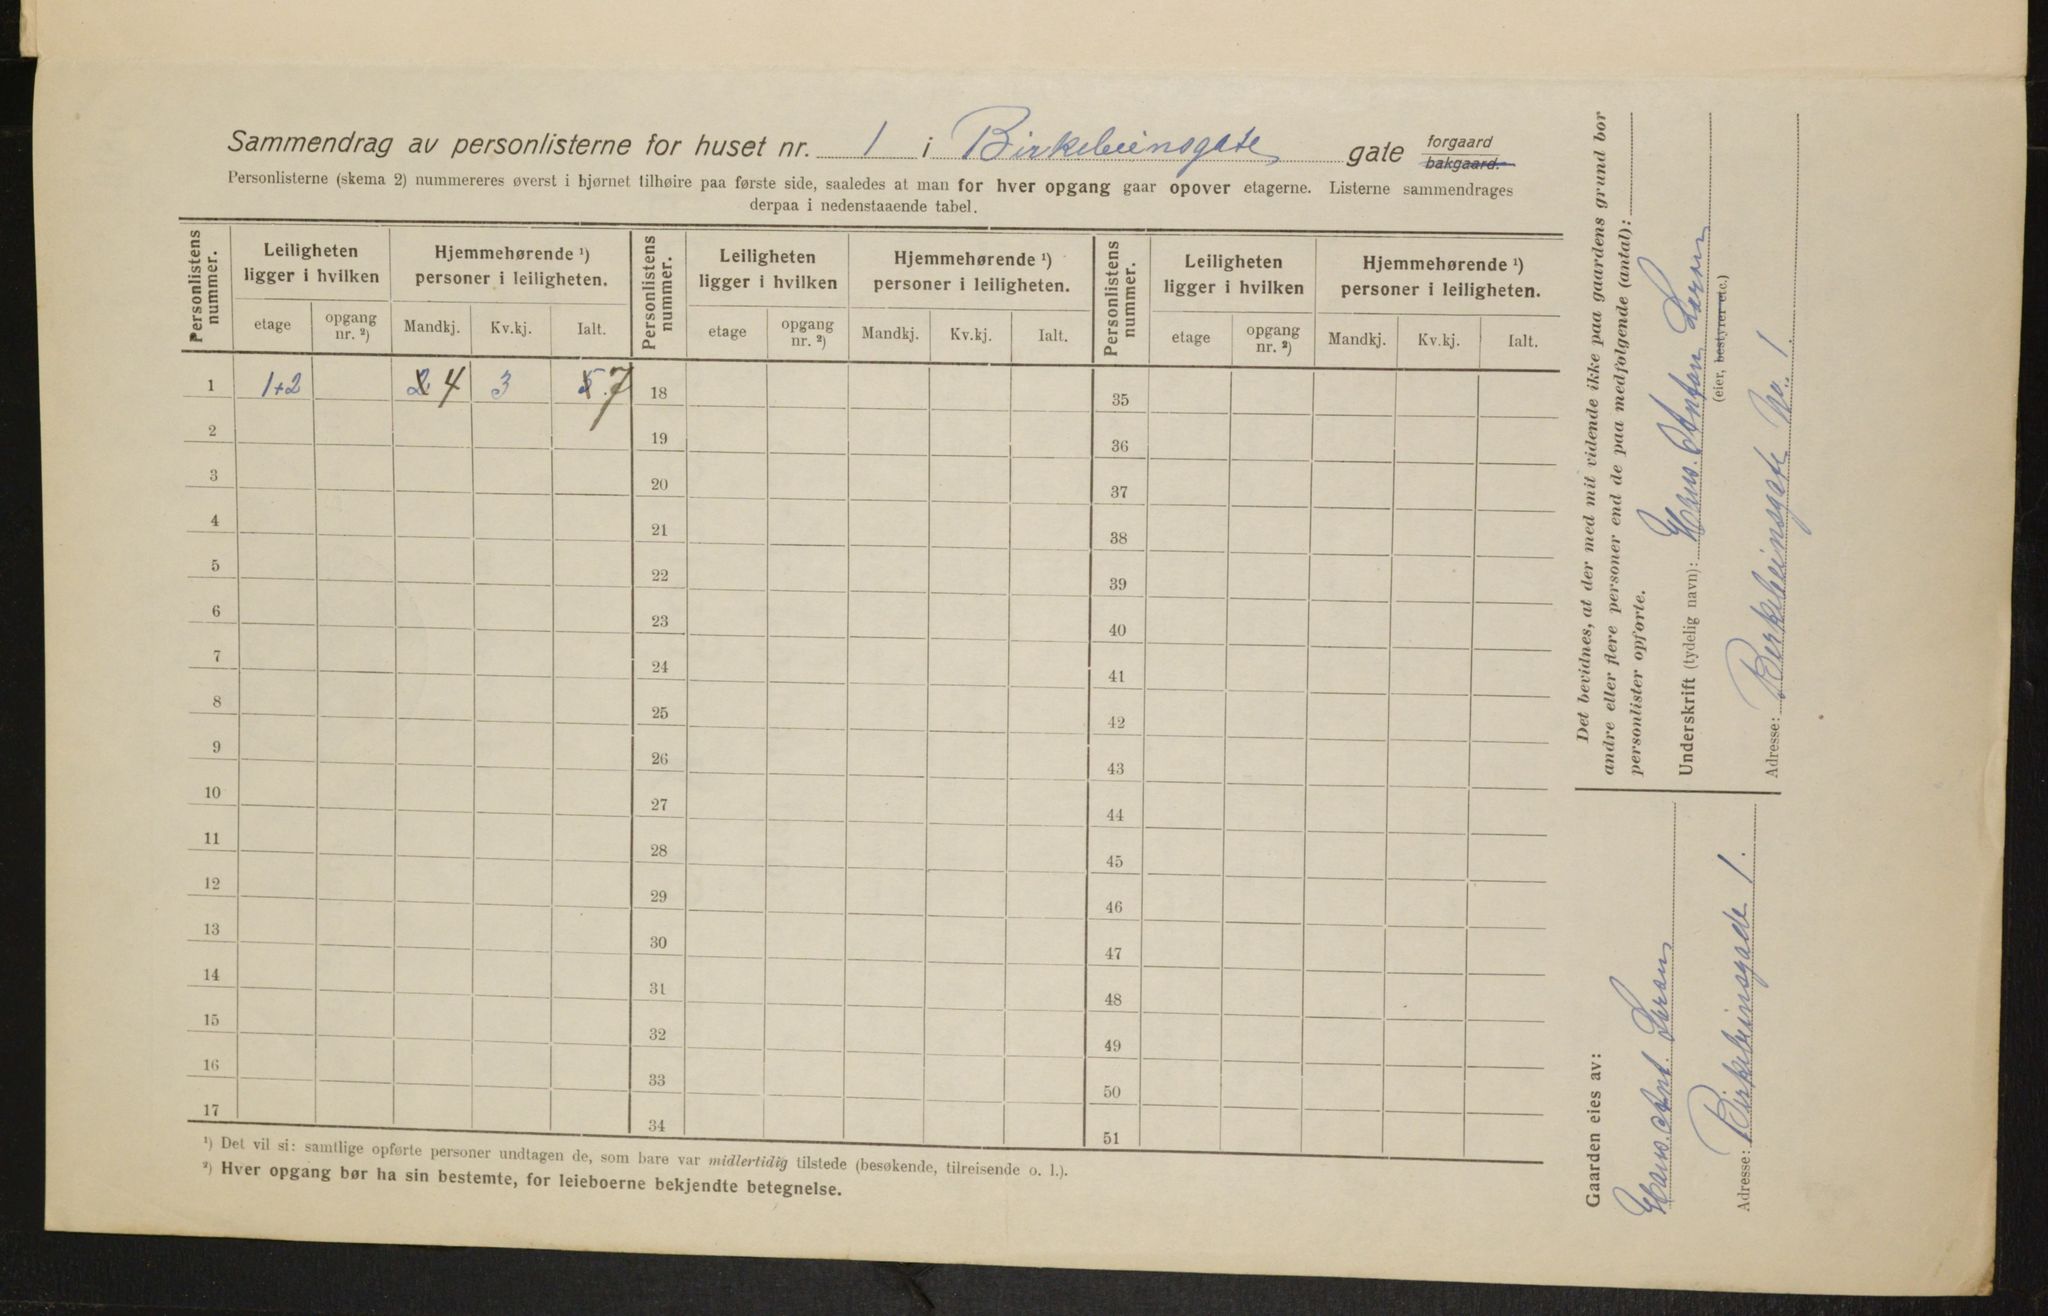 Sammendrag av personlisterne for huset nr. 1 i Birkebeinsgate gate forgaard bakgaard.
Personlisterne (skema 2) nummereres øverst i hjørnet tilhøire paa første side, saaledes at man for hver opgang gaar opover etagerne. Listerne sammendrages
derpaa i nedenstaaende tabel.
Personlistens nummer. Leiligheten ligger i hvilken Hjemmehørende ¹) personer i leiligheten. Personlistens nummer. Leiligheten ligger i hvilken Hjemmehørende ¹) personer i leiligheten. Personlistens nummer. Leiligheten ligger i hvilken Hjemmehørende ¹) personer i leiligheten.
etage opgang nr. ²) Mandkj. Kv.kj. Ialt. etage opgang nr. ²) Mandkj. Kv.kj. Ialt. etage opgang nr. ²) Mandkj. Kv.kj. Ialt.
1 1+2 2 4 3 5. 7 18 35
2 19 36
3 20 37
4 21 38
5 22 39
6 23 40
7 24 41
8 25 42
9 26 43
10 27 44
11 28 45
12 29 46
13 30 47
14 31 48
15 32 49
16 33 50
17 34 51
¹) Det vil si: samtlige opførte personer undtagen de, som bare var midlertidig tilstede (besøkende, tilreisende o. l.).
²) Hver opgang bør ha sin bestemte, for leieboerne bekjendte betegnelse.
Det bevidnes, at der med mit vidende ikke paa gaardens grund bor
andre eller flere personer end de paa medfølgende (antal):
personlister opførte.
Underskrift (tydelig navn): Hans. Anton
(eier, bestyrer etc.)
Adresse: Birkebeinsgate No. 1.
Gaarden eies av:
Hans. Ant.
Adresse: Birkebeinsgade 1.